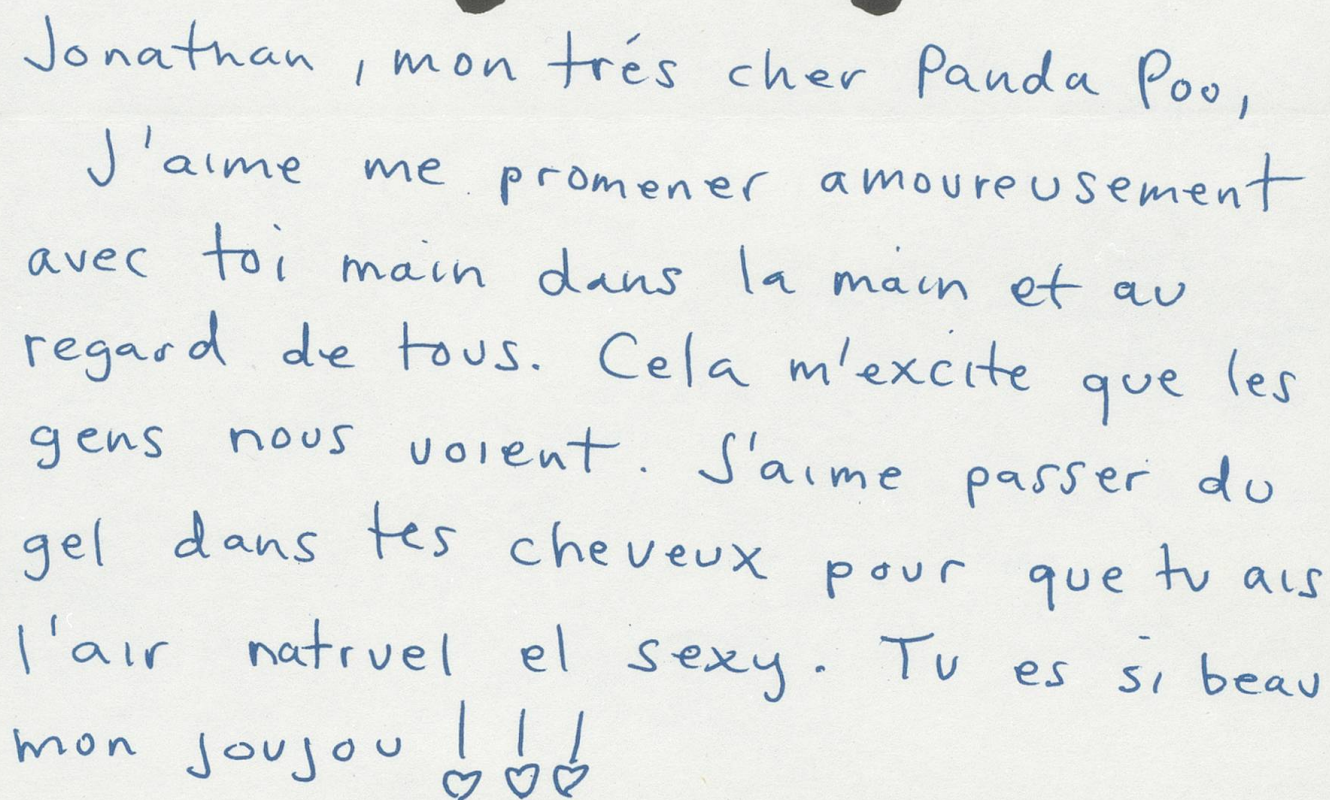 Jonathan, mon trés cher Panda Poo,
J'aime me promener amoureusement
avec toi main dans la main et au
regard de tous. Cela m'excite que les
gens nous voient. J'aime passer du
gel dans tes cheveux pour que tu ais
l'air natruel el sexy. Tu es si beau
mon joujou !!!